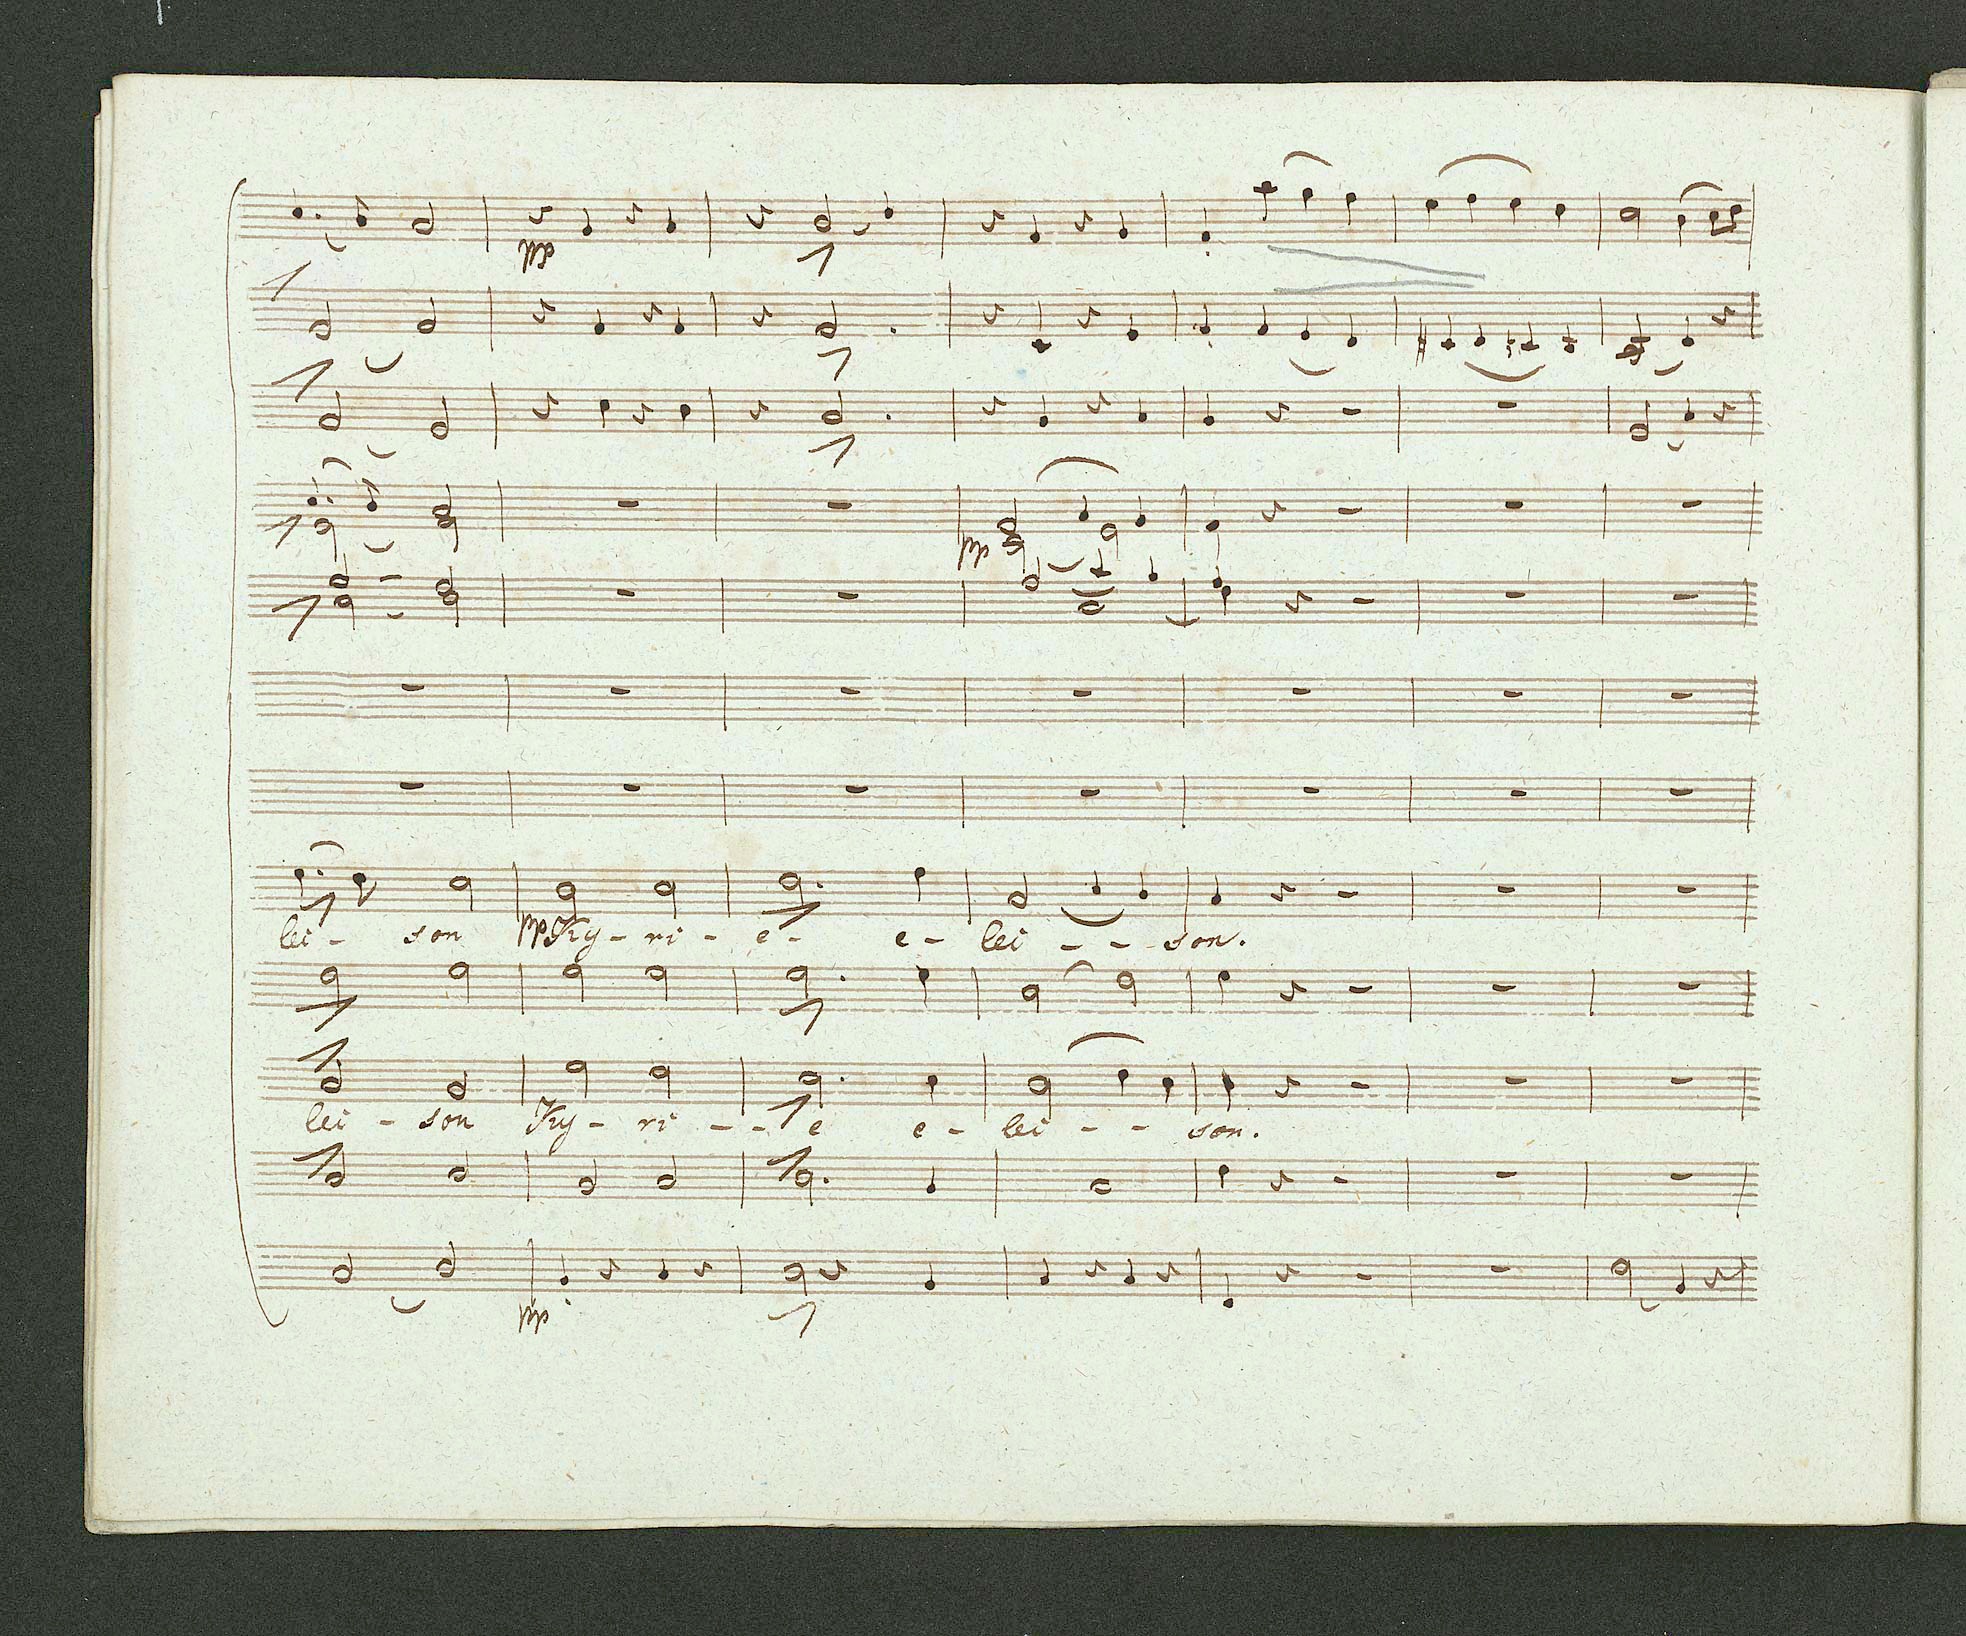 pp
pp
lei - son ppKy - ri - e - e - lei - - - son.
lei - son Ky - ri - - e e - lei - - son.
pp